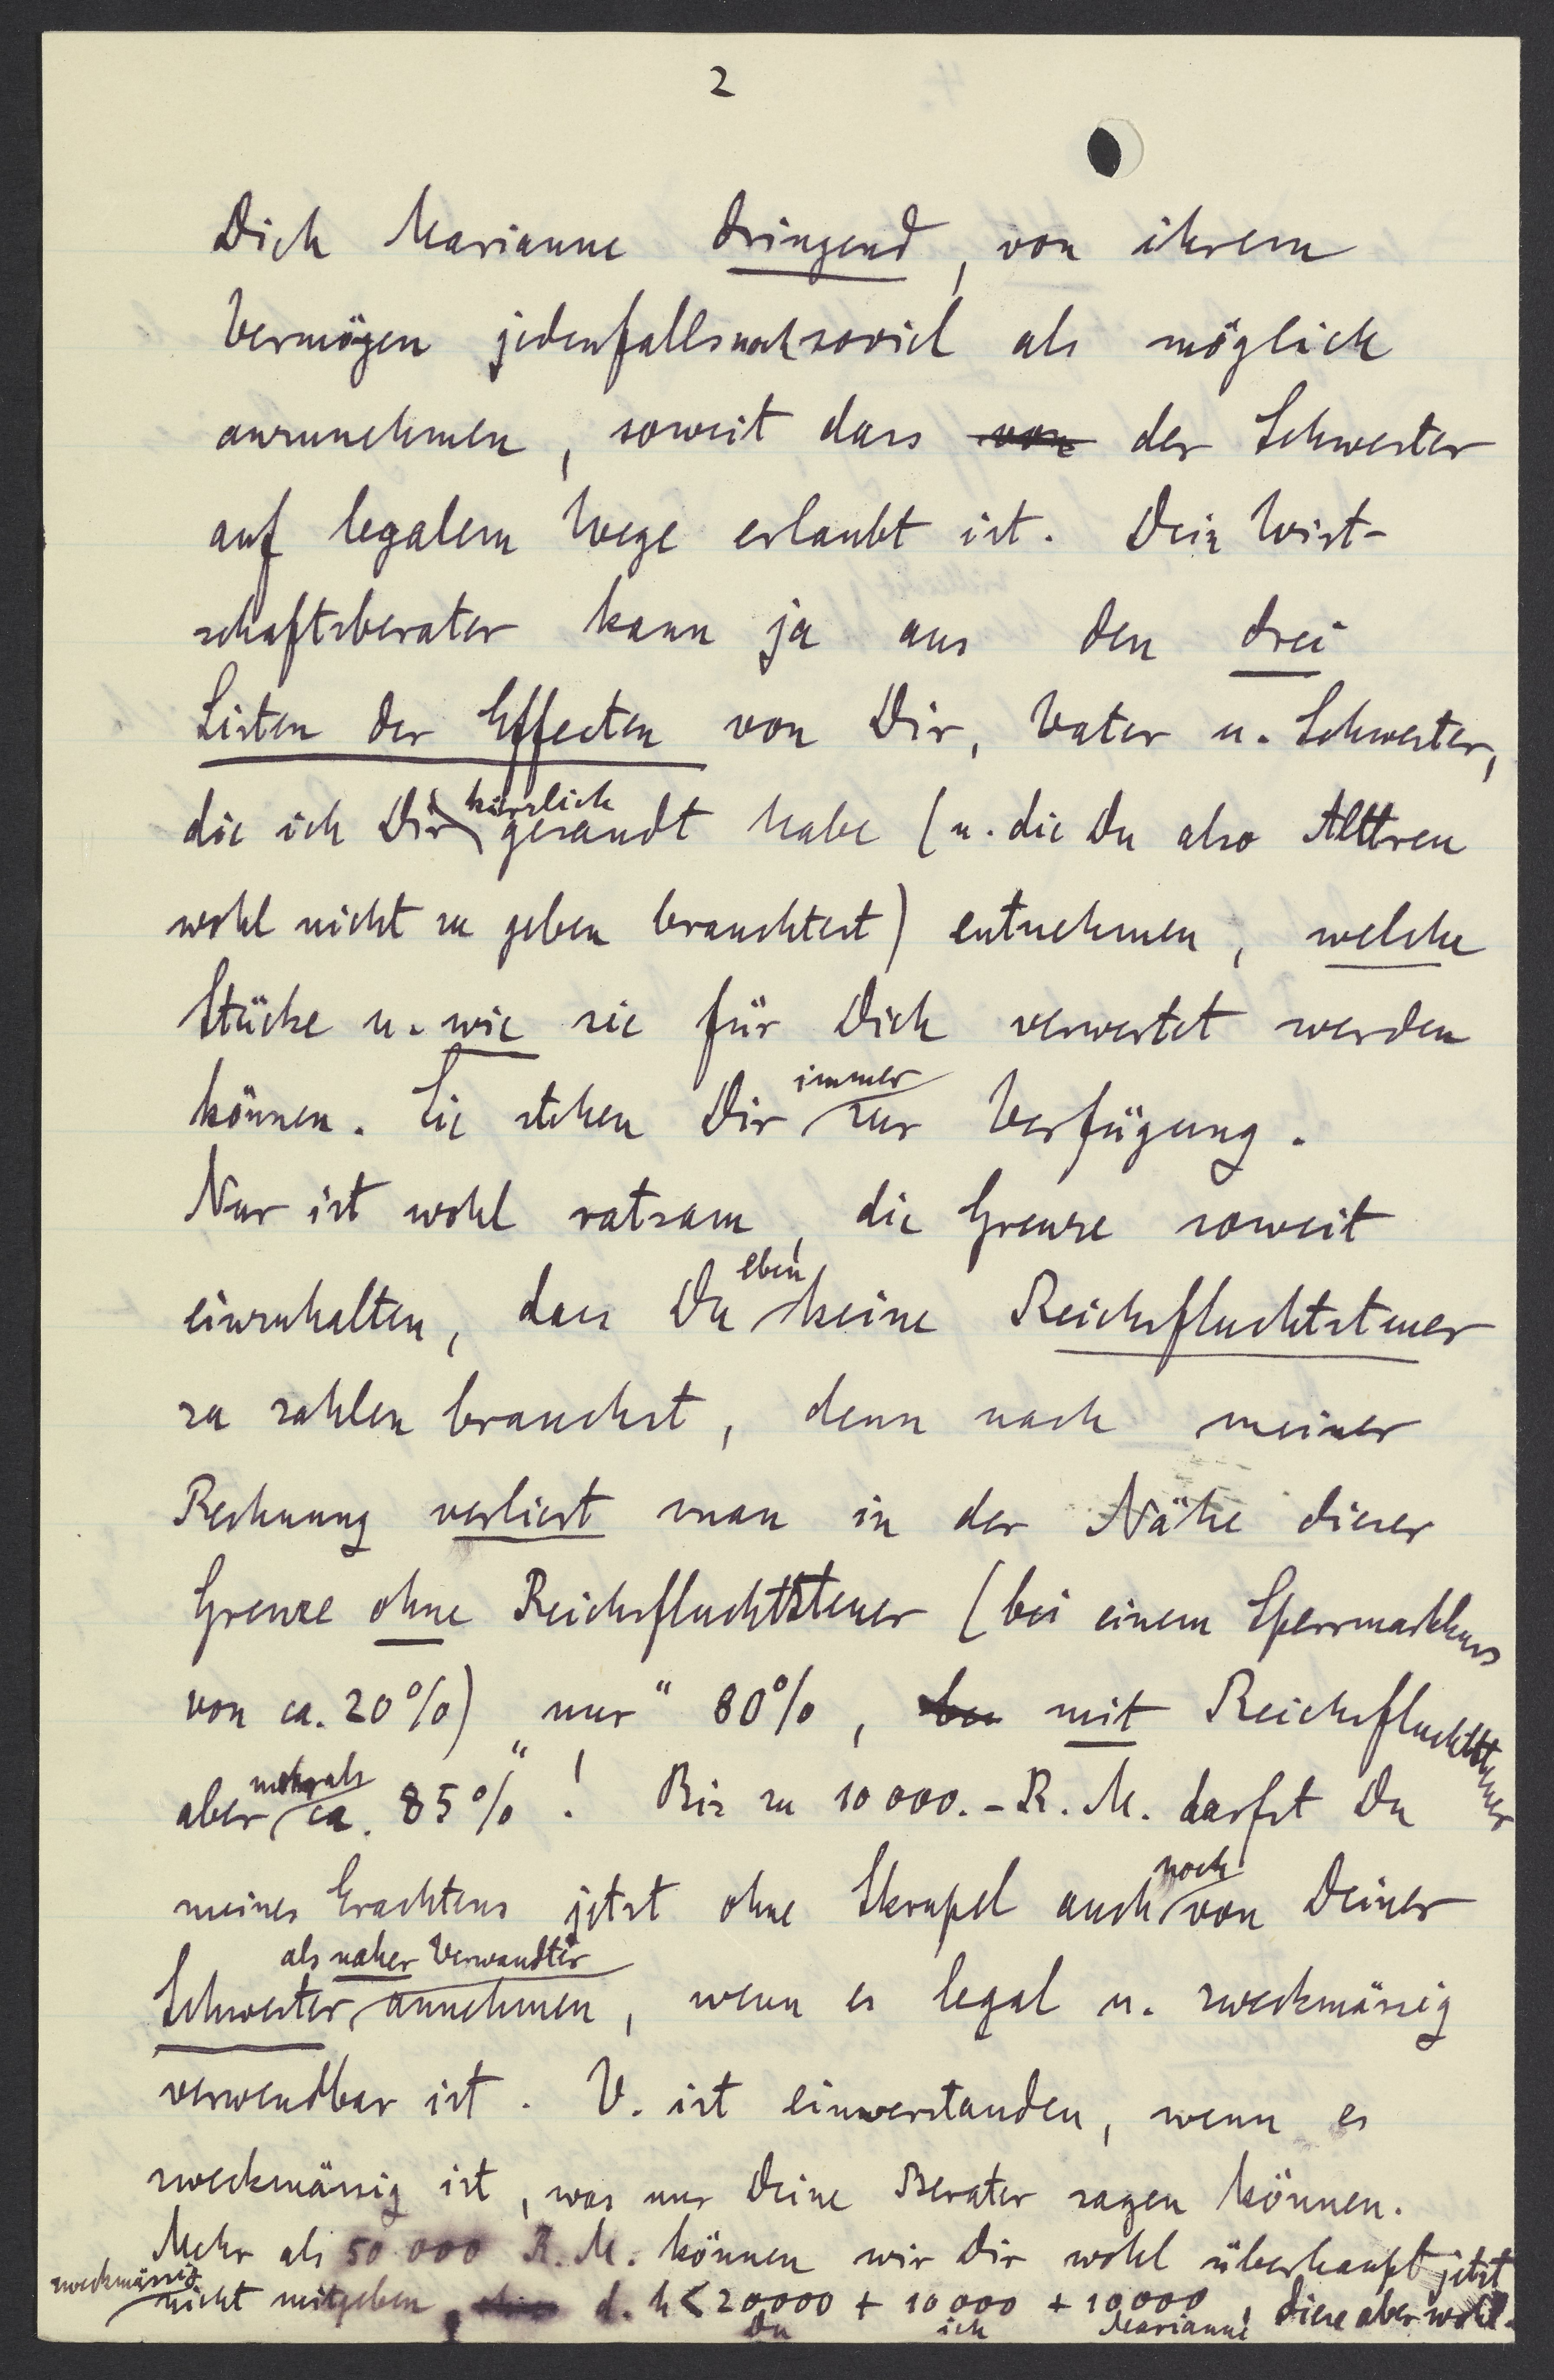 2
Dich Marianne dringend, von ihrem
Vermögen jedenfalls noch soviel als möglich
anzunehmen, soweit dass von der Schwester
auf legalem Wege erlaubt ist. Dein Wirt-
schaftsberater kann ja aus den drei
Listen der Effecten von Dir, Vater u. Schwester,
die ich Dir kürzlich gesandt habe (u. die Du also Alttreu
wohl nicht zu geben brauchtest) entnehmen, welche
Stücke u. wie sie für Dich verwertet werden
können. Sie stehen Dir immer zur Verfügung.
Nur ist wohl ratsam, die Grenze soweit
einzuhalten, dass Du eben keine Reichsfluchtsteuer
zu zahlen brauchst, denn nach meiner
Rechnung verliert man in der Nähe dieser
Grenze ohne Reichsfluchtsteuer (bei einem Sperrmarkkurs
von ca. 20%) „nur“ 80%, mit Reichsfluchtsteuer
aber mehr als ca. 85%! Bis zu 10 000.- R. M. darfst Du
meines Erachtens jetzt ohne Skrupel auch noch von Deiner
Schwester als naher Verwandter annehmen, wenn es legal u. zweckmässig
verwendbar ist. V. ist einverstanden, wenn es
zweckmässig ist, was nur Deine Berater sagen können.
Mehr als 50 000 R. M. können wir Dir wohl überhaupt jetzt
zweckmässig nicht mitgeben, d. h < 20000 + 10 000 + 10 000, diese aber wohl.
Du ich Marianne